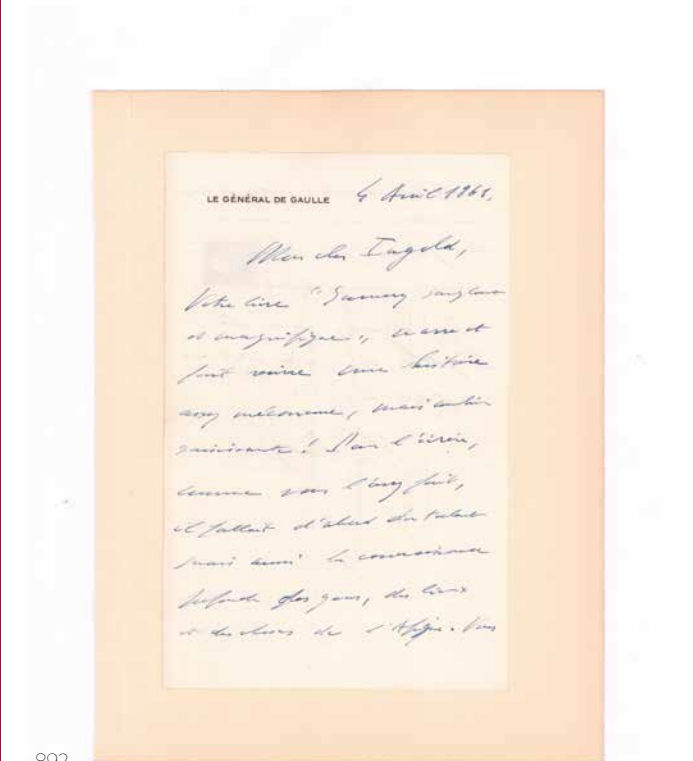 LE GÉNÉRAL DE GAULLE
4 Avril 1961.
Mon cher Ingold,
Votre livre "Samory sanglant
et magnifique", narre et
fait revivre une histoire
assez méconnue, mais combien
saisissante ! Pour l'écrire,
comme vous l'avez fait,
il fallait d'abord du talent
mais aussi la connaissance
profonde des gens, des lieux
et des choses de l'Afrique. Vous
892